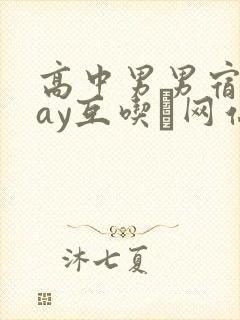 高中男男宿
ay互喫网
沐七夏